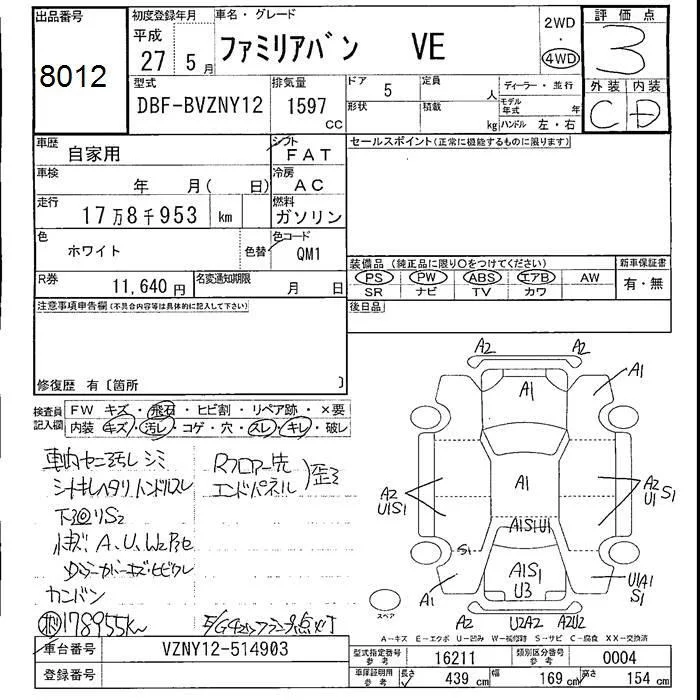 出品番号
8012
初度登録年月
平成
27 5 月
車名・グレード
ファミリアバン VE
2WD
・
4WD
評価点
3
外装 内装
C D
型式
DBF-BVZNY12
排気量
1597
cc
ドア
5
定員
人
形状
積載
kg
ディーラー・並行
モデル
年式
年
ハンドル 左・右
車歴
自家用
シフト
FAT
車検
年 月( 日)
冷房
AC
走行
17万8千953 km
燃料
ガソリン
色
ホワイト
色替
色コード
QM1
R券
11,640 円
名変通知期限
月 日
セールスポイント(正常に機能するものに限ります)
装備品(純正品に限り〇をつけてください)
新車保証書
PS PW ABS エアB AW
SR ナビ TV カワ
有・無
後日品
注意事項申告欄(不具合内容等は具体的に記入して下さい)
修復歴 有〔箇所 〕
検査員
記入欄
FW キズ・飛石・ヒビ割・リペア跡・×要
内装 キズ・汚レ・コゲ・穴・スレ・キレ・破レ
車内ヤニ汚レ シミ
シートキレ ヘタリ ハンドルスレ
下廻リS2
小キズ A、U、W2 P己
カンバン
178955km
Rフロアー先
エンドパネル
歪ミ
A2 A2
A1
A1
A1
A2
U1S1
A2
U1 S1
A1S1U1
S1
A1S1
U3
A1
U1A1
S1
A2 U2A2 A2U2
スペア
A-キズ E-エクボ U-凹み W-補修跡 S-サビ C-腐食 XX-交換済
車台番号
VZNY12-514903
登録番号
型式指定番号
参考
16211
類別区分番号
参考
0004
車庫証明用
参考
長さ
439 cm
幅
169 cm
高さ
154 cm